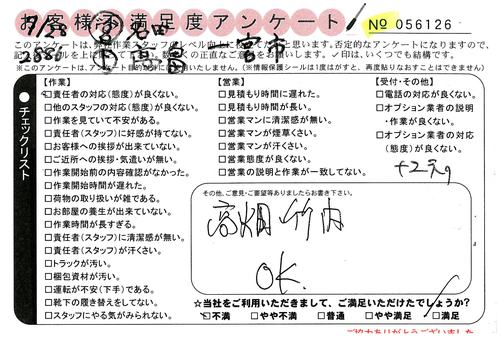 お客様不満足度アンケート
No 056126
このアンケートは、
否定的なアンケートになりますので、
✓印は、いくつでも結構です。
(※情報保護シールは1度はがすと、再度貼りなおすことはできません)
チェックリスト
【作業】
□責任者の対応(態度)が良くない。
□他のスタッフの対応(態度)が良くない。
□作業を見ていて不安がある。
□責任者(スタッフ)に好感が持てない。
□お客様への挨拶が出来ていない。
□ご近所への挨拶・気遣いが無い。
□作業開始前の内容確認がなかった。
□作業開始時間が遅れた。
□荷物の取り扱いが雑である。
□お部屋の養生が出来ていない。
□作業時間が長すぎる。
□責任者(スタッフ)に清潔感が無い。
□責任者(スタッフ)が汗くさい。
□トラックが汚い。
□梱包資材が汚い。
□運転が不安(下手)である。
□靴下の履き替えをしてない。
□スタッフにやる気がみられない。
【営業】
□見積もり時間に遅れた。
□見積もり時間が長い。
□営業マンに清潔感が無い。
□営業マンが煙草くさい。
□営業マンが汗くさい。
□営業態度が良くない。
□営業の説明と作業が一致してない。
【受付・その他】
□電話の対応が良くない。
□オプション業者の説明
・作業が良くない。
□オプション業者の対応
(態度)が良くない。
その他、ご意見・ご要望等ありましたらお書き下さい。
高畑 竹内
OK.
☆当社をご利用いただきまして、ご満足いただけたでしょうか?
□不満 □やや不満 □普通 □やや満足 □満足
ご協力ありがとうございました